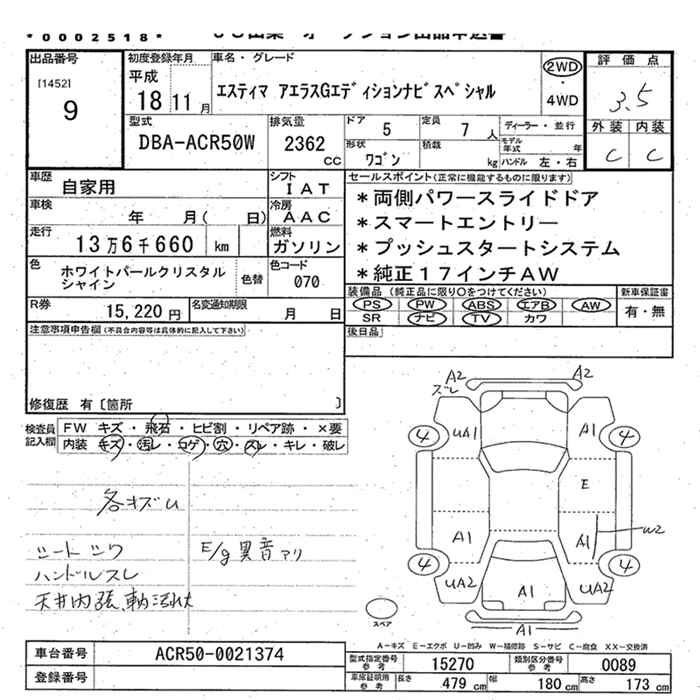 *0002518*
出品番号
[1452]
9
初度登録年月
平成
18 11月
車名・グレード
エスティマ アエラスGエディションナビスペシャル
2WD
・
4WD
評価点
3.5
外装 内装
C C
型式
DBA-ACR50W
排気量
2362
CC
ドア 5
定員 7人
ディーラー・並行
形状
ワゴン
積載 kg
モデル年式 年
ハンドル 左・右
車歴
自家用
シフト
IAT
車検
年 月( 日)
冷房
AAC
走行
13万6千660 km
燃料
ガソリン
色
ホワイトパールクリスタルシャイン
色替
色コード
070
R券
15,220円
名変通知期限
月 日
セールスポイント(正常に機能するものに限ります)
*両側パワースライドドア
*スマートエントリー
*プッシュスタートシステム
*純正17インチAW
装備品 (純正品に限り○をつけてください)
PS PW ABS エアB AW
SR ナビ TV カワ
新車保証書
有・無
後日品
注意事項申告欄(不具合内容等は具体的に記入して下さい)
修復歴 有〔箇所 〕
検査員記入欄
FW キズ・飛石・ヒビ割・リペア跡・×要
内装 キズ・汚レ・コゲ・穴・スレ・キレ・破レ
各キズU
シートシワ
ハンドルスレ
天井内張、軸汚れ大
E/g異音アリ
A2
ズレ
A2
4
UA1
A1
4
E
A1
A1
W2
4
UA2
A1
UA2
4
A1
スペア
A-キズ E-エクボ U-凹み W-補修跡 S-サビ C-腐食 XX-交換済
車台番号
ACR50-0021374
登録番号
型式指定番号
参考
15270
類別区分番号
参考
0089
車庫証明用
参考
長さ 479 cm
幅 180 cm
高さ 173 cm